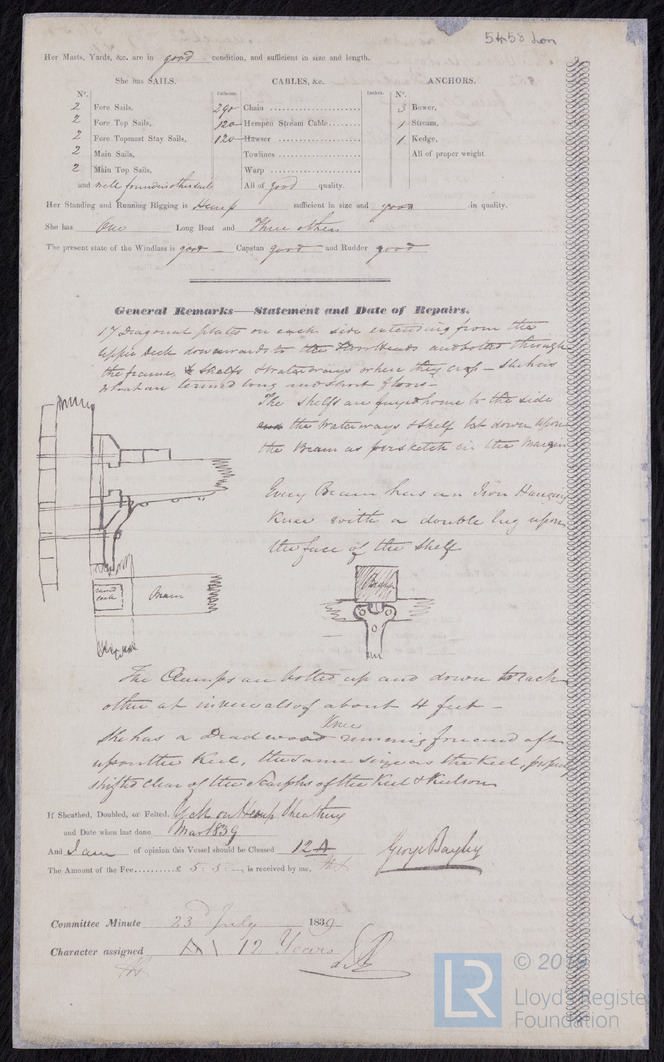 5458 Lon
Her Masts, Yards, &c. are in good condition, and sufficient in size and length.
She has SAILS. CABLES, &c. ANCHORS.
N°. Fathoms. Inches. N°.
2 Fore Sails, 290 Chain 3 Bower,
2 Fore Top Sails, 120 Hempen Stream Cable 1 Stream,
2 Fore Topmast Stay Sails, 120 Hawser 1 Kedge,
2 Main Sails, Towlines All of proper weight.
2 Main Top Sails, Warp
and well found in other sails All of good quality.
Her Standing and Running Rigging is Hemp sufficient in size and good in quality.
She has One Long Boat and Three others
The present state of the Windlass is good Capstan good and Rudder good
General Remarks—Statement and Date of Repairs.
17 Diagonal plates on each side extending from the
upper deck downwards to the Floorheads and bolted through
the frames, & shelfs & waterways where they cross – She has
long and short floors –
The shelfs are fayed home to the side
the Waterways & shelf let down upon
the Beam as per sketch in the Margin
Every Beam has an Iron Hanging
Knee with a double lug upon
the face of the Shelf
Beam
Beam
The Clamps are bolted up and down to each
other at intervals of about 4 feet –
Knee
She has a Dead wood running forward aft
upon the Keel, the same size as the Keel, properly
shifted clear of the Scarphs of the Keel & Keelson
If Sheathed, Doubled, or Felted, Y.M. on Hemp Sheathing
and Date when last done Mar 1839
And I am of opinion this Vessel should be Classed 12 A
The Amount of the Fee £ 5 : 5 : – is received by me, George Bayley
Committee Minute 23d July 1839
Character assigned A1 12 Years
© 2019
LR Lloyd's Register
Foundation